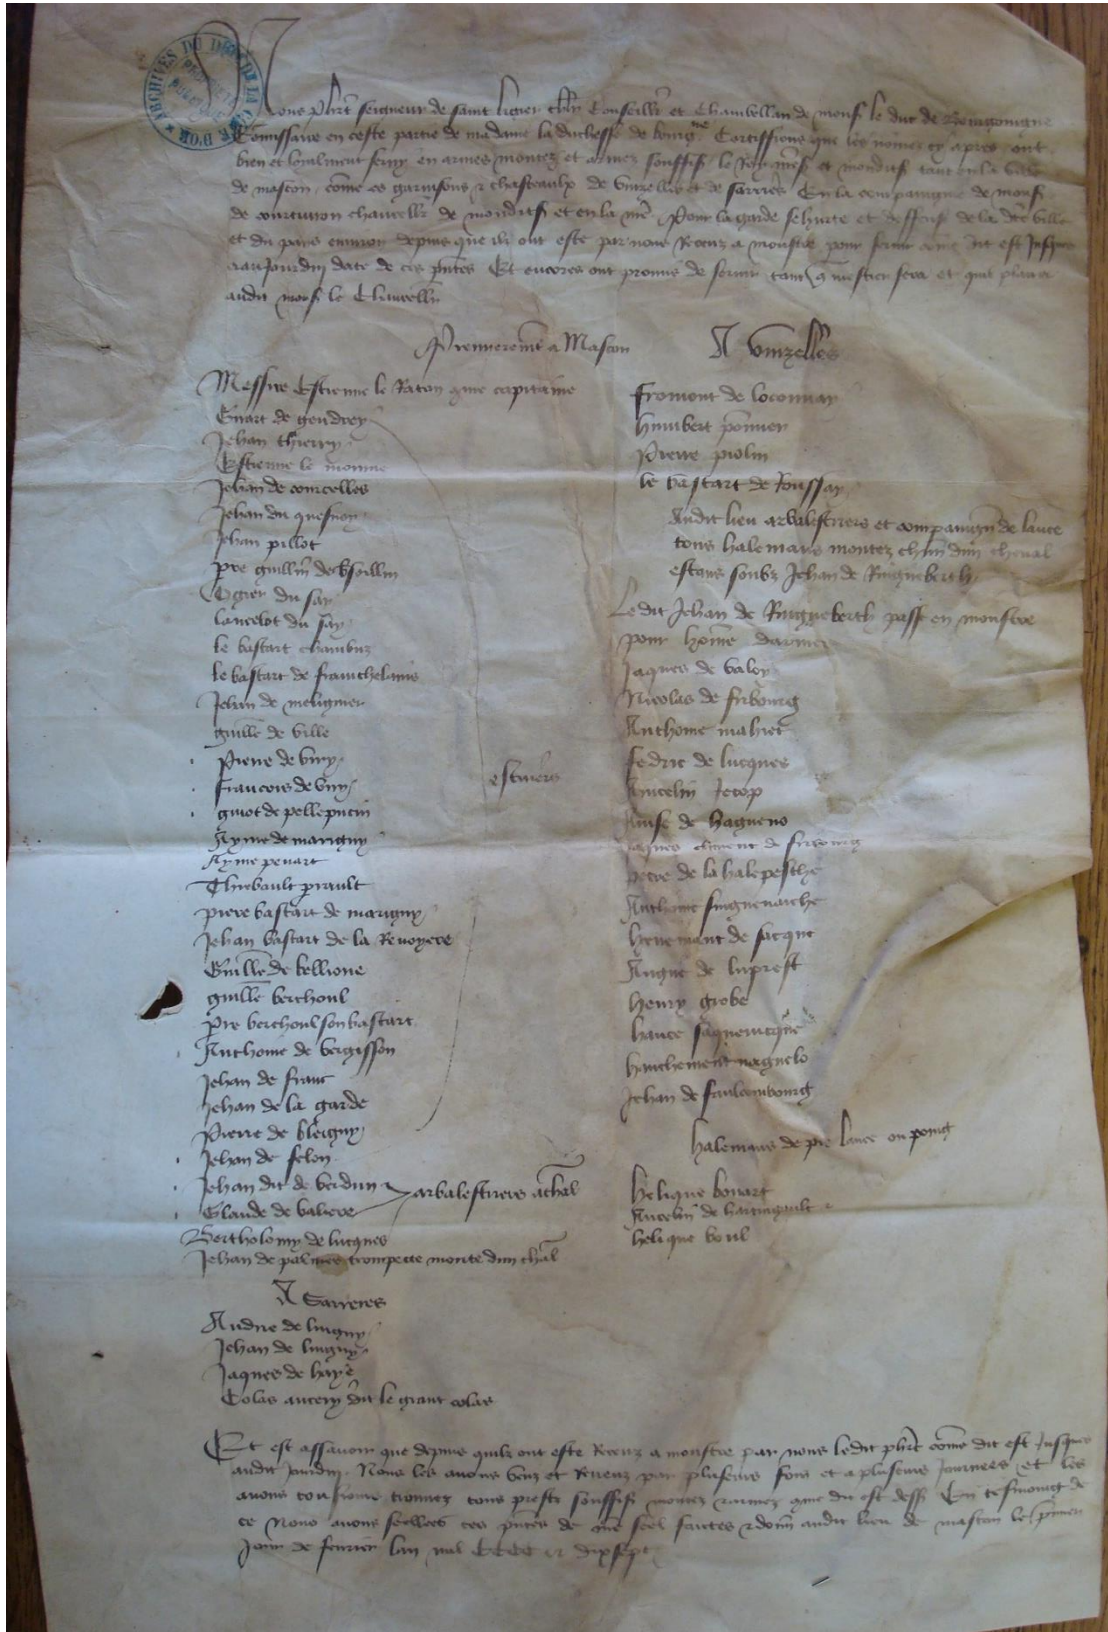 ARCHIVES DU DÉPT DE LA CÔTE D'OR
PROPRIÉTÉ PUBLIQUE
Nous seigneur de saint ligier Conseillr et Chambellan de mons le duc de Bourgoingne
Comissaire en ceste partie de madame la duchesse de bourgne Certiffions que les nomez cy apres ont
bien et loialment servy en armes montez et armez souffis le Roy et mondits tant en la ville
de mascon come es garnisons et chasteaulx de vinzelles et de En la compaignie de mons
de courtivron chancellr de mondits et en la Pour la garde seurte et deffense de la dte ville
et du pais environ depuis que ilz ont este par nous Receuz a monstre pour servir come dit est Jusques
aujourduy date de ces pntes Et encores ont promis de servir tant q mestier sera et quil plaira
audit mons le Chancellr
Premieremt a Mascon
Messire Estienne le Raton come capitaine
Evart de gendrey
Jehan thierry
Estienne le moinne
Jehan de courcelles
Jehan du quesnoy
Jehan pillot
pre guillm
Ogier du fay
lancelot du fay
le bastart chambuz
le bastart de franchelains
Jehan de melignier
guille de ville
Pierre de viry
francois de viry
guiot de pellepucin
Ayme de marigny
Ayme penart
Thiebault prault
pierre bastart de marigny
Jehan bastart de la Revoyere
Guille de bellione
guille berthoul
pre berthoul son bastart
Anthoine de vergisson
Jehan de franc
Jehan de la garde
Pierre de bleigny
escuiers
Jehan de felon
Jehan dit de verdun
Glaude de baliere
arbalestriers a chal
Bertholomy de lucques
Jehan de palmes trompette monte dun chal
A Sarrieres
Andrie de lingny
Jehan de lingny
Jaques de haye
Colas ancery dit le grant colas
A vinzelles
fromont de loconnay
humbert ponnier
Pierre piolin
le bastart de Roussay
Audit lieu arbalestriers et compaingn de lance
tous halemans montez chun dun cheval
estans soubz Jehan de Ringueberth
Ledit Jehan de Ringueberth passe en monstre
pour home darmes
Jaques de valoy
Nicolas de fribourg
Anthoine mahiet
fedric de lucques
Ancelin Jecop
de hagueno
Jaques climent de fribourg
pierre de la halepesche
Anthoine singuenaiche
hennemant de sacque
Augue de lupreft
henry grobe
hance saquenicque
hanchement naguelo
Jehan de faulcombourg
halemans de pie lance ou poing
helique bonart
Ancelin de haitingault
helique boul
Et est assavoir que depuis quilz ont este Receuz a monstre par nous ledit come dit est Jusques
audit jourduy Nous les avons veuz et Reveuz par pluseurs fois et a pluseurs Journees et les
avons tousiours trouvez tous prests souffis montez et armez come dit est dess En tesmoing de
ce Nous avons seellees ces pntes de nre seel faictes et donn audit lieu de mascon le pmier
Jour de fevrier lan mil CCCC et dixsept